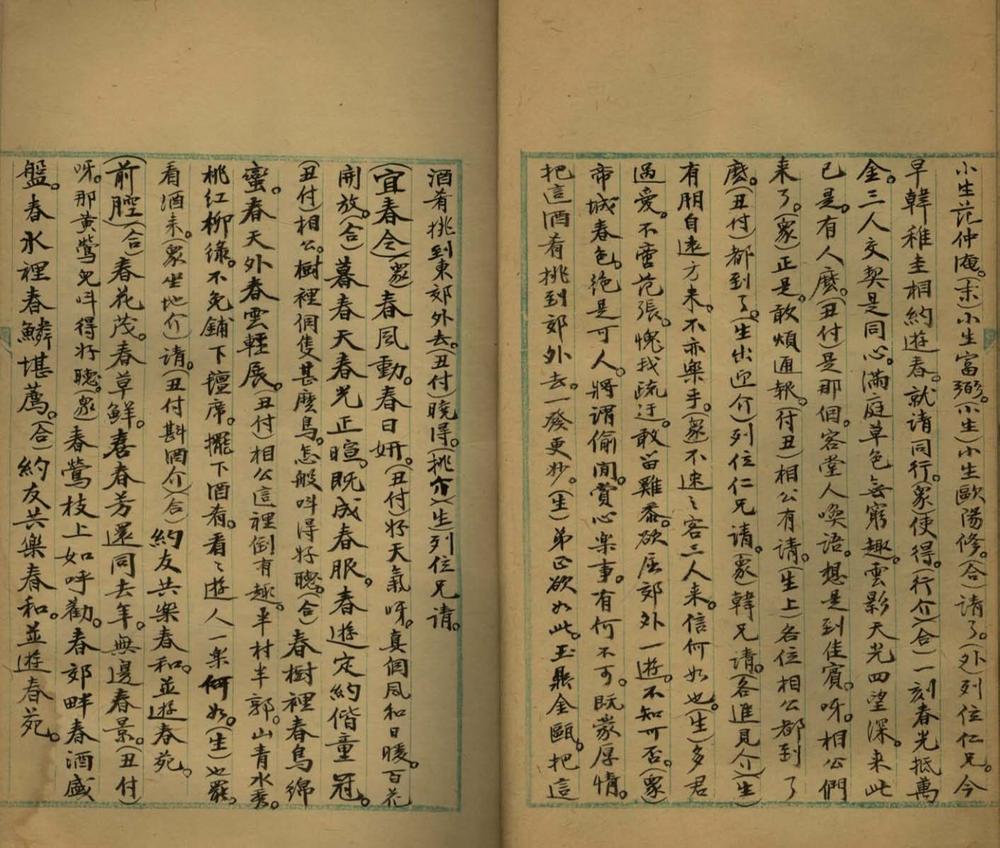 小生范仲俺。(末)小生富弼。(小生)小生歐陽修。(合)請了。(外)列位仁兄。今
早韓稚圭相約遊春。就请同行。(眾)使得。(行介)(合)一刻春光抵萬
金。三人交契是同心。滿庭草色無窮趣。雲影天光四望深。来此
已是。有人麼。(丑付)是那個。容堂人喚語。想是到佳賓。呀。相公們
来了。(眾)正是。敢煩通報。(付丑)相公有请。(生上)各位相公都到了
麼。(丑付)都到了。(生出迎介)列位仁兄请。(眾)韓兄请。(各進見介)(生)
有朋自遠方来。不亦樂乎。(眾)不速之客三人来。信何如也。(生)多君
過愛。不啻范張。愧我疏迂。敢留雞黍。欲屈郊外一遊。不知可否。(眾)
帝城春色。絶是可人。將谓偷閒。賞心楽事。有何不可。既蒙厚情。
把這酒肴挑到郊外去。一發更妙。(生)弟正欲如此。玉鼎金甌。把這
酒肴挑到東郊外去。(丑付)曉得。(挑介)(生)列位兄请。
(宜春令)(眾)春風動。春日妍。(丑付)好天氣呀。真個風和日暖。百花
開放。(合)暮春天春光正暄。既成春服。春遊定約偕童冠。
(丑付)相公。樹裡個隻甚麼鳥。怎般呌得好聴。(合)春樹裡春鳥綿
蠻。春天外春雲輕展。(丑付)相公這裡倒有趣。半村半郭。山青水秀。
桃红柳綠。不免鋪下氊席。擺下酒肴。看看遊人一楽何如。(生)也罷。
看酒来。(眾坐地介)请。(丑付斟酒介)(合)約友共樂春和。並遊春苑。
(前腔)(合)春花茂。春草鮮。喜春芳還同去年。無邊春景。(丑付)
呀。那黄鶯兒呌得好聴。(眾)春鶯枝上如呼勸。春郊畔春酒盛
盤。春水裡春鱗堪薦。(合)約友共樂春和。並遊春苑。